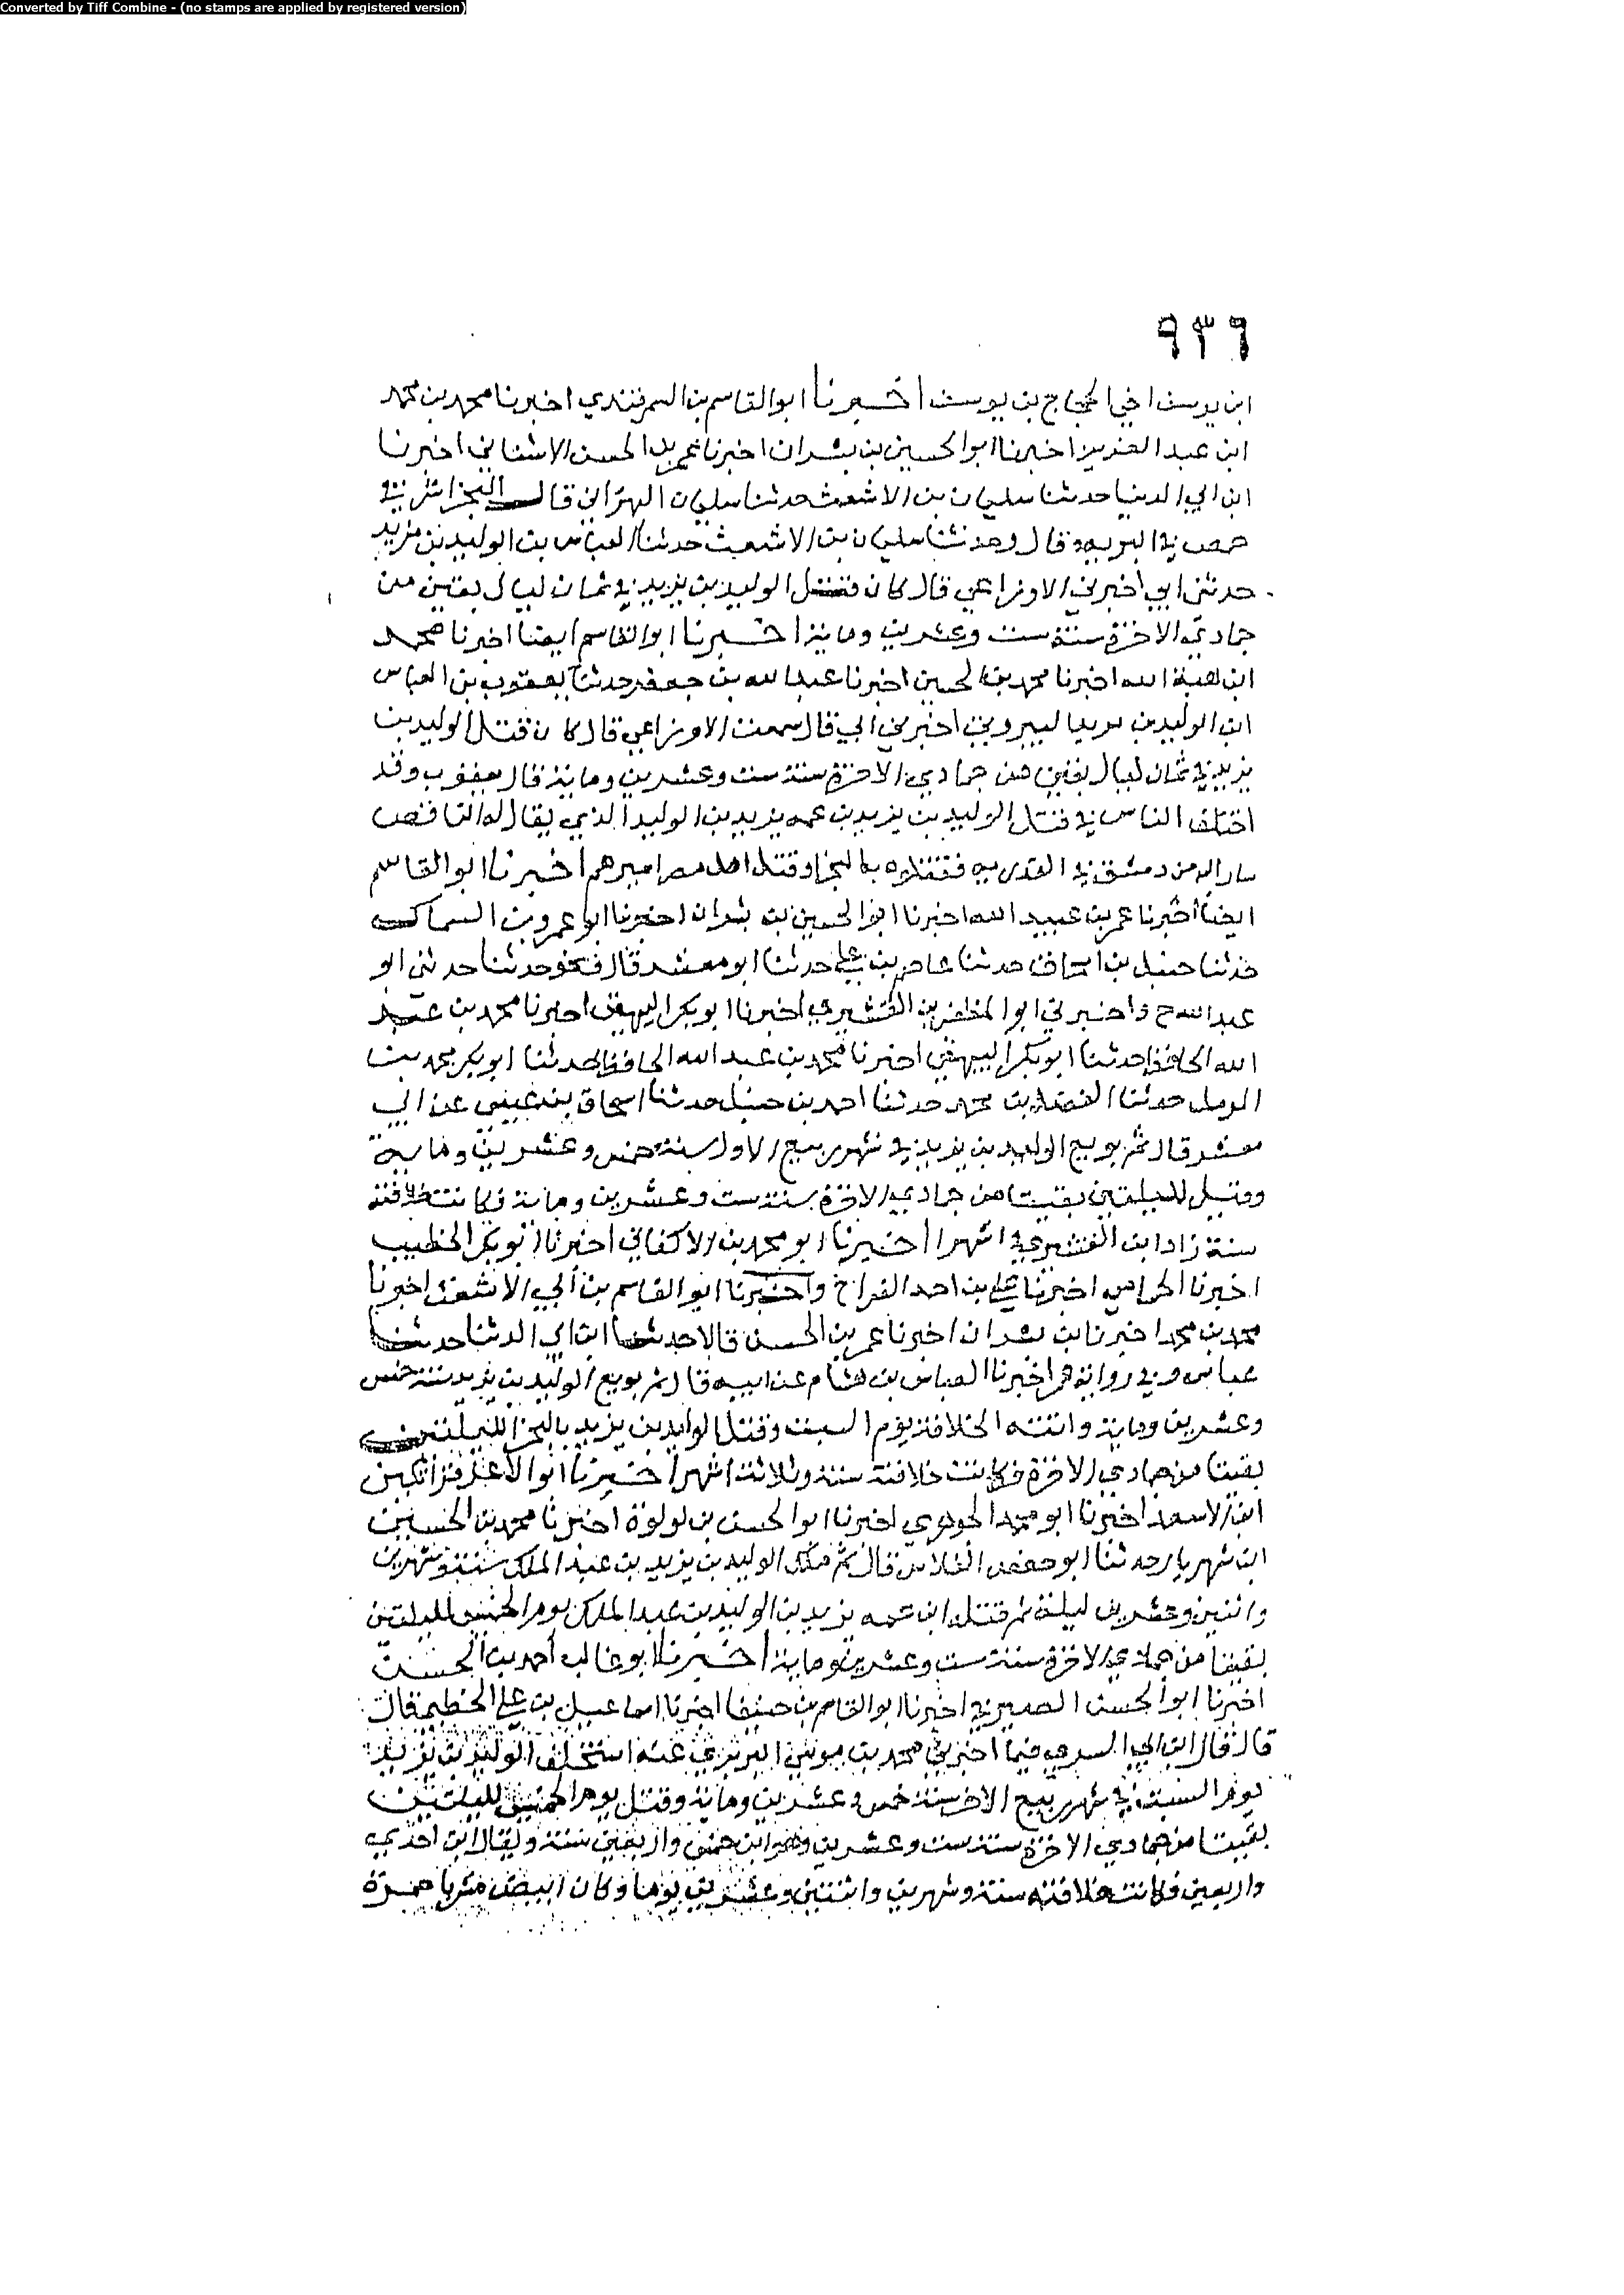 Converted by Tiff Combine - (no stamps are applied by registered version)
٩٣٦
ابن يوسف اخي الحجاج بن يوسف اخبرنا ابو القاسم بن السمرقندي اخبرنا محمد بن محمد
ابن عبد العزيز اخبرنا ابو الحسين بن بشران اخبرنا عمر بن الحسن الاشناني اخبرنا
ابن ابي الدنيا حدثنا سليمان بن الاشعث حدثنا سليمان قال البخرا
حمص في البريه قال وحدثنا سليمان بن الاشعث حدثنا العباس بن الوليد بن مزيد
حدثني ابي اخبرني الاوزاعي قال كان قتل الوليد بن يزيد في ثمان ليال بقين من
جمادي الاخرة سنة ست وعشرين وماية اخبرنا ابو القاسم ايضا اخبرنا محمد
ابن هبة الله اخبرنا محمد بن الحسين اخبرنا عبد الله بن جعفر حدثنا يعقوب بن العباس
ابن الوليد بن البيروتي اخبرني ابي قال سمعت الاوزاعي قال كان قتل الوليد بن
يزيد في ثمان ليال بقين من جمادي الاخرة سنة ست وعشرين وماية قال يعقوب وقد
اختلف الناس في قتل الوليد بن يزيد بن عمه يزيد بن الوليد الذي يقال له الناقص
سار اليه من دمشق في فقتلوه بالبخرا وقتل اهل مصر اميرهم اخبرنا ابو القاسم
ايضا اخبرنا عمر بن عبيد الله اخبرنا ابو الحسين بن بشران اخبرنا ابو عمرو بن السماك
حدثنا حنبل بن اسحاق حدثنا عاصم بن علي حدثنا ابو معشر قال وحدثنا حدثني ابو
عبد الله ح واخبرني ابو المظفر بن القشيري اخبرنا ابو بكر البيهقي اخبرنا محمد بن عبد
الله الحافظ حدثنا ابو بكر البيهقي اخبرنا محمد بن عبد الله الحافظ حدثنا ابو بكر محمد بن
المومل حدثنا الفضل بن محمد حدثنا احمد بن حنبل حدثنا اسحاق بن عيسي عن ابي
معشر قال ثم بويع الوليد بن يزيد في شهر ربيع الاول سنة خمس وعشرين وماية
وقتل لليلتين بقيتا من جمادي الاخرة سنة ست وعشرين وماية وكانت خلافته
سنة زاد ابن القشيري اشهرا اخبرنا ابو محمد بن الاكفاني اخبرنا ابو بكر الخطيب
اخبرنا اخبرنا علي بن احمد ح واخبرنا ابو القاسم بن ابي الاشعث اخبرنا
محمد بن محمد اخبرنا بن بشران اخبرنا عمر بن الحسن قالا حدثنا ابن ابي الدنيا حدثنا
عباس وفي رواية اخبرنا العباس بن هشام عن ابيه قال ثم بويع الوليد بن يزيد سنة خمس
وعشرين وماية واتته الخلافة يوم السبت وقتل الوليد بن يزيد بالبخرا لليلتين
بقيتا من جمادي الاخرة فكانت خلافته سنة وثلاثة اشهر اخبرنا ابو الاعز قراتكين
ابن الاسعد اخبرنا ابو محمد الجوهري اخبرنا ابو الحسن بن لولوة اخبرنا محمد بن الحسين
ابن شهريار حدثنا ابو حفص الفلاس قال ثم ملك الوليد بن يزيد بن عبد الملك سنة وشهرين
واثنين وعشرين ليلة ثم قتله ابن عمه يزيد بن الوليد بن عبد الملك يوم الخميس لليلتين
بقيتا من جمادي الاخرة سنة ست وعشرين وماية اخبرنا ابو غالب احمد بن الحسن
اخبرنا ابو الحسن اخبرنا ابو القاسم بن اخبرنا اسماعيل بن علي الخطبي قال
قال قال ابن ابي السري فيما اخبرني محمد بن موسى عنه استخلف الوليد بن يزيد
يوم السبت في شهر ربيع الاخر سنة خمس وعشرين وماية وقتل يوم الخميس لليلتين
بقيتا من جمادي الاخرة سنة ست وعشرين وهو ابن خمس واربعين سنة ويقال ابن احدي
واربعين وكانت خلافته سنة وشهرين واثنين وعشرين يوما وكان ابيض مشربا حمرة